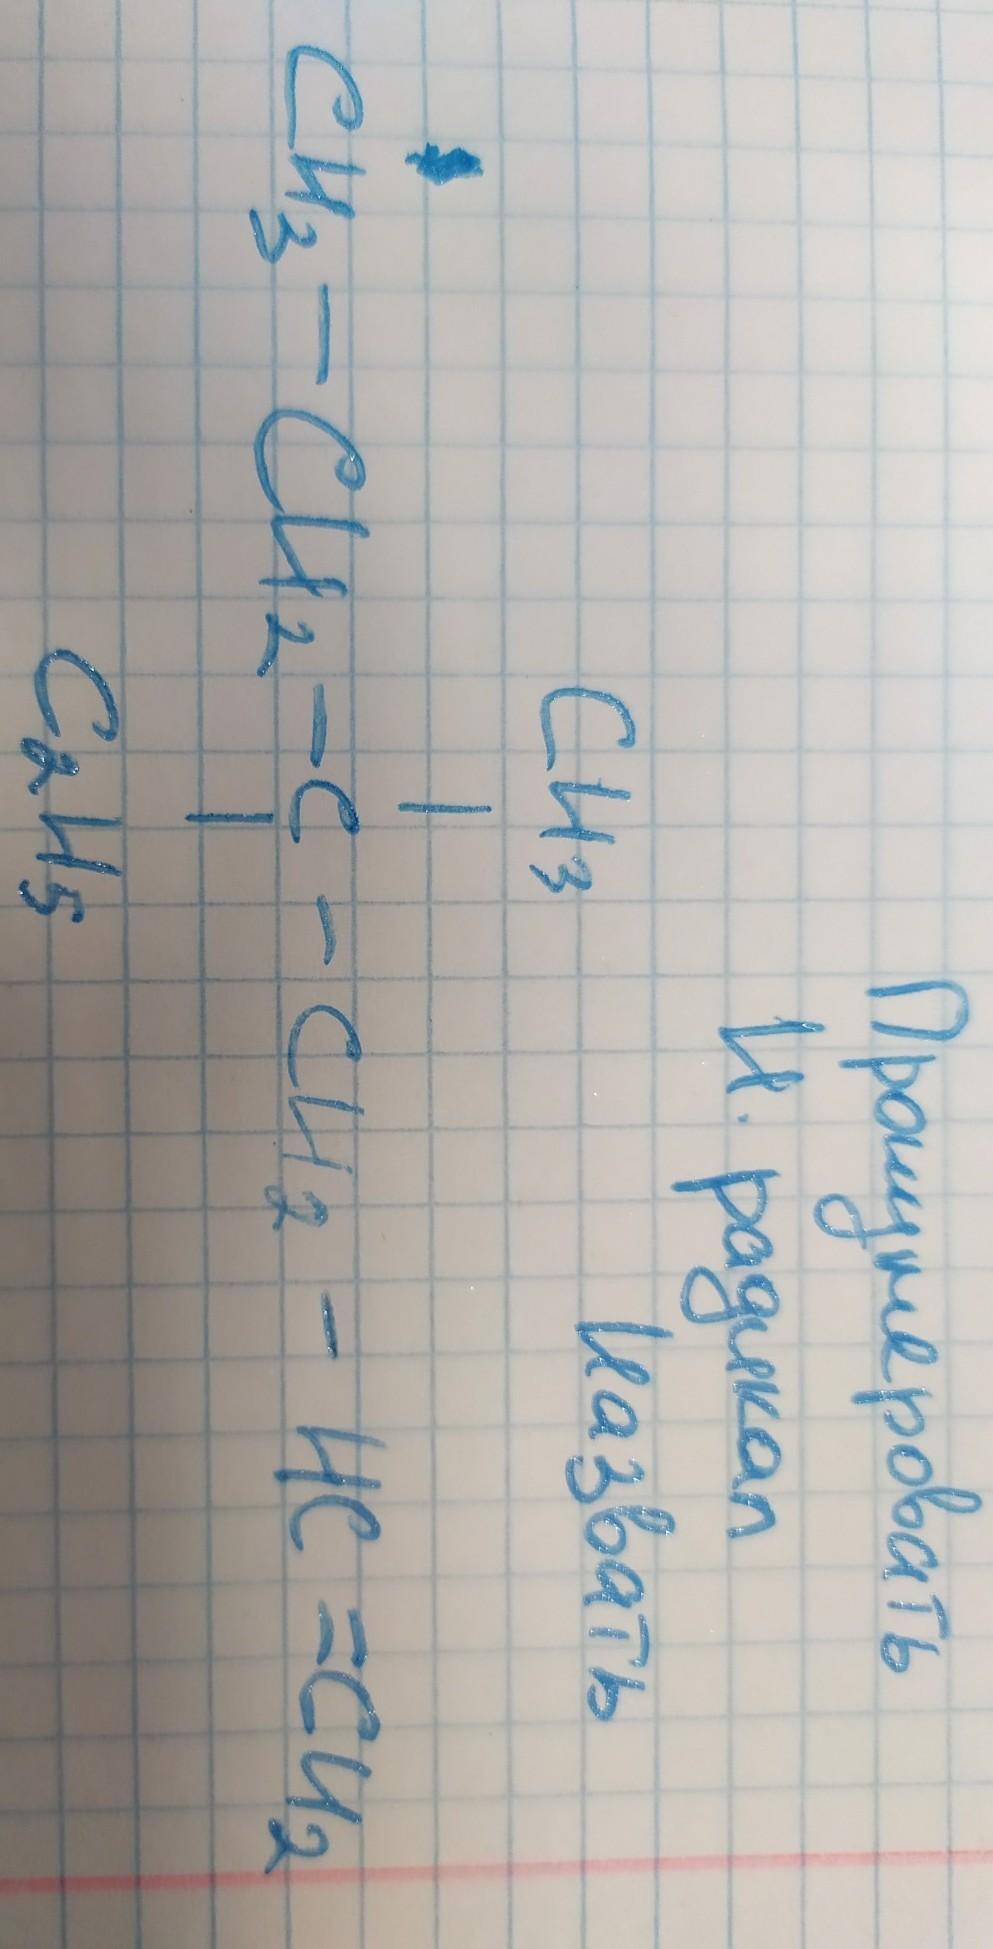 Пронумеровать
и. радикал
назвать
CH3
CH3-CH2-C-CH2-HC=CH2
C2H5